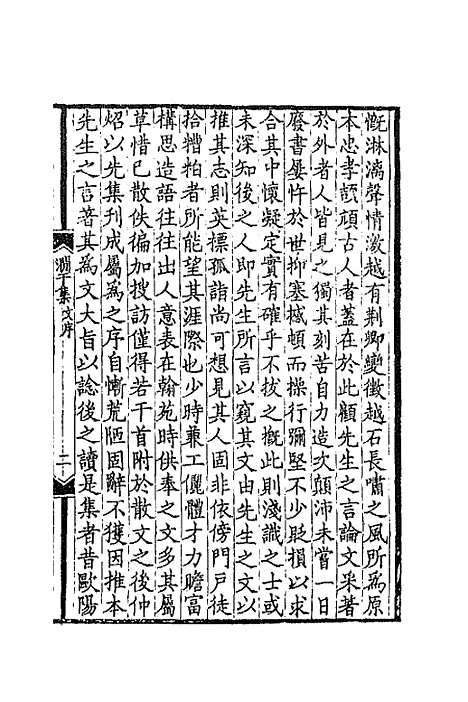 慨淋漓聲情激越有荆卿變徵越石長嘯之風所爲原
本忠孝頡頏古人者蓋在於此顧先生之言論文采著
於外者人皆見之獨其刻苦自力造次顛沛未嘗一日
廢書屢忤於世抑塞撼頓而操行彌堅不少貶損以求
合其中懷凝定實有確乎不拔之槪此則淺識之士或
未深知後之人卽先生所言以窺其文由先生之文以
推其志則英標孤詣尚可想見其人固非依傍門戶徒
拾糟粕者所能望其涯際也少時兼工儷體才力贍富
構思造語往往出人意表在翰苑時供奉之文多其屬
草惜已散佚徧加搜訪僅得若干首附於散文之後仲
炤以先集刊成屬爲之序自慚荒陋固辭不獲因推本
先生之言著其爲文大旨以諗後之讀是集者昔歐陽
澗于集文序
二